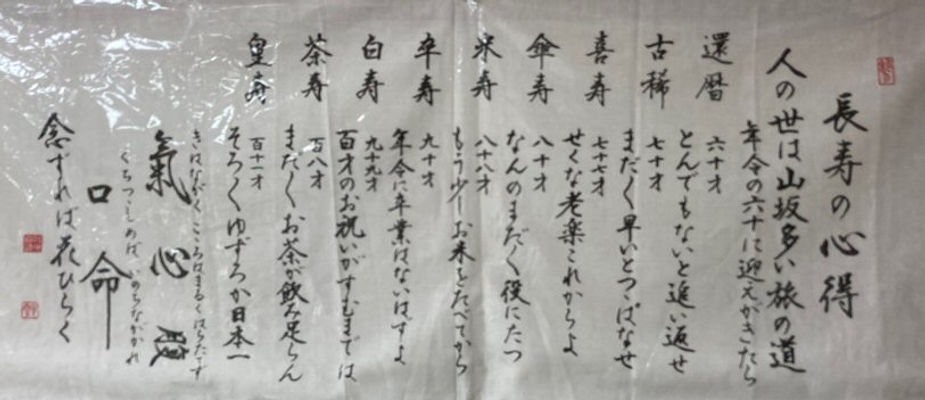 長寿の心得
人の世は山坂多い旅の道
年令の六十に迎えがきたら
還暦 六十才
とんでもないと追い返せ
古稀 七十才
まだ〱早いとつっぱなせ
喜寿 七十七才
せくな老楽これからよ
傘寿 八十才
なんのまだ〱役にたつ
米寿 八十八才
もう少しお米をたべてから
卒寿 九十才
年令に卒業はないはずよ
白寿 九十九才
百才のお祝いがすむまでは
茶寿 百八才
まだ〱お茶が飲み足らん
皇寿 百十一才
そろ〱ゆずろか日本一
きはながく こころはまるく はらたてず
氣 心 腹
くちつつしめば いのちながかれ
口 命
念ずれば花ひらく